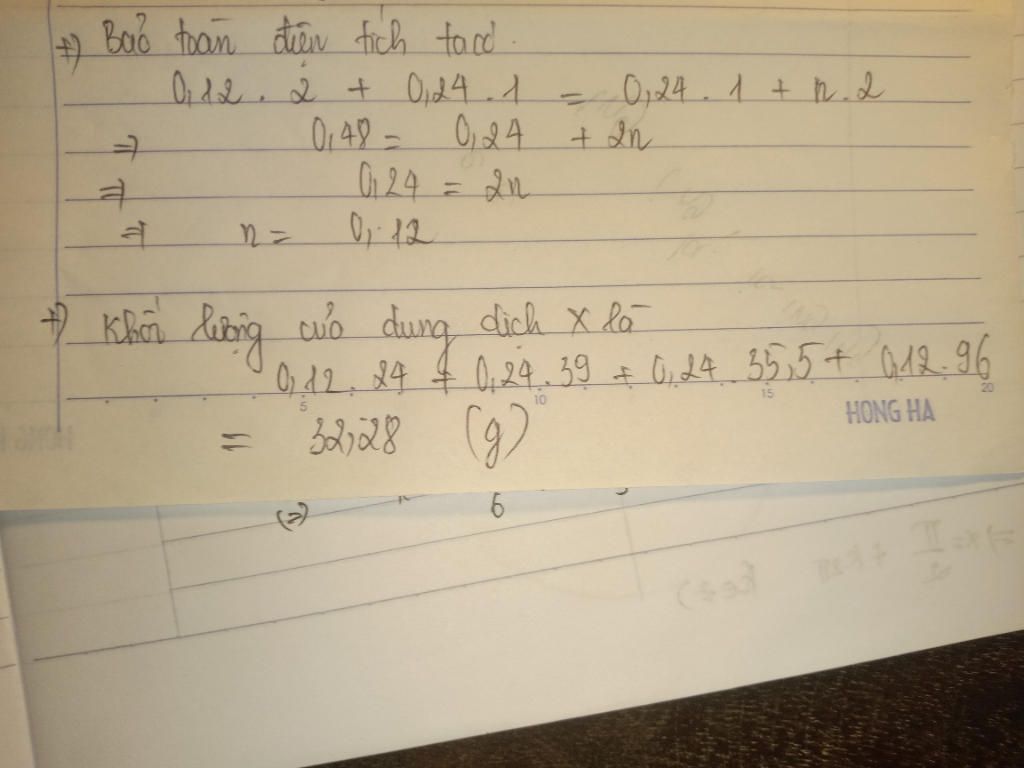 +) Bảo toàn điện tích ta có.
0,12 . 2 + 0,24 . 1 = 0,24 . 1 + n . 2
=> 0,48 = 0,24 + 2n
=> 0,24 = 2n
=> n = 0,12
+) Khối lượng của dung dịch X là
0,12 . 24 + 0,24 . 39 + 0,24 . 35,5 + 0,12 . 96
5 10 15 20
HONG HA
= 32,28 (g)
(=>) 6